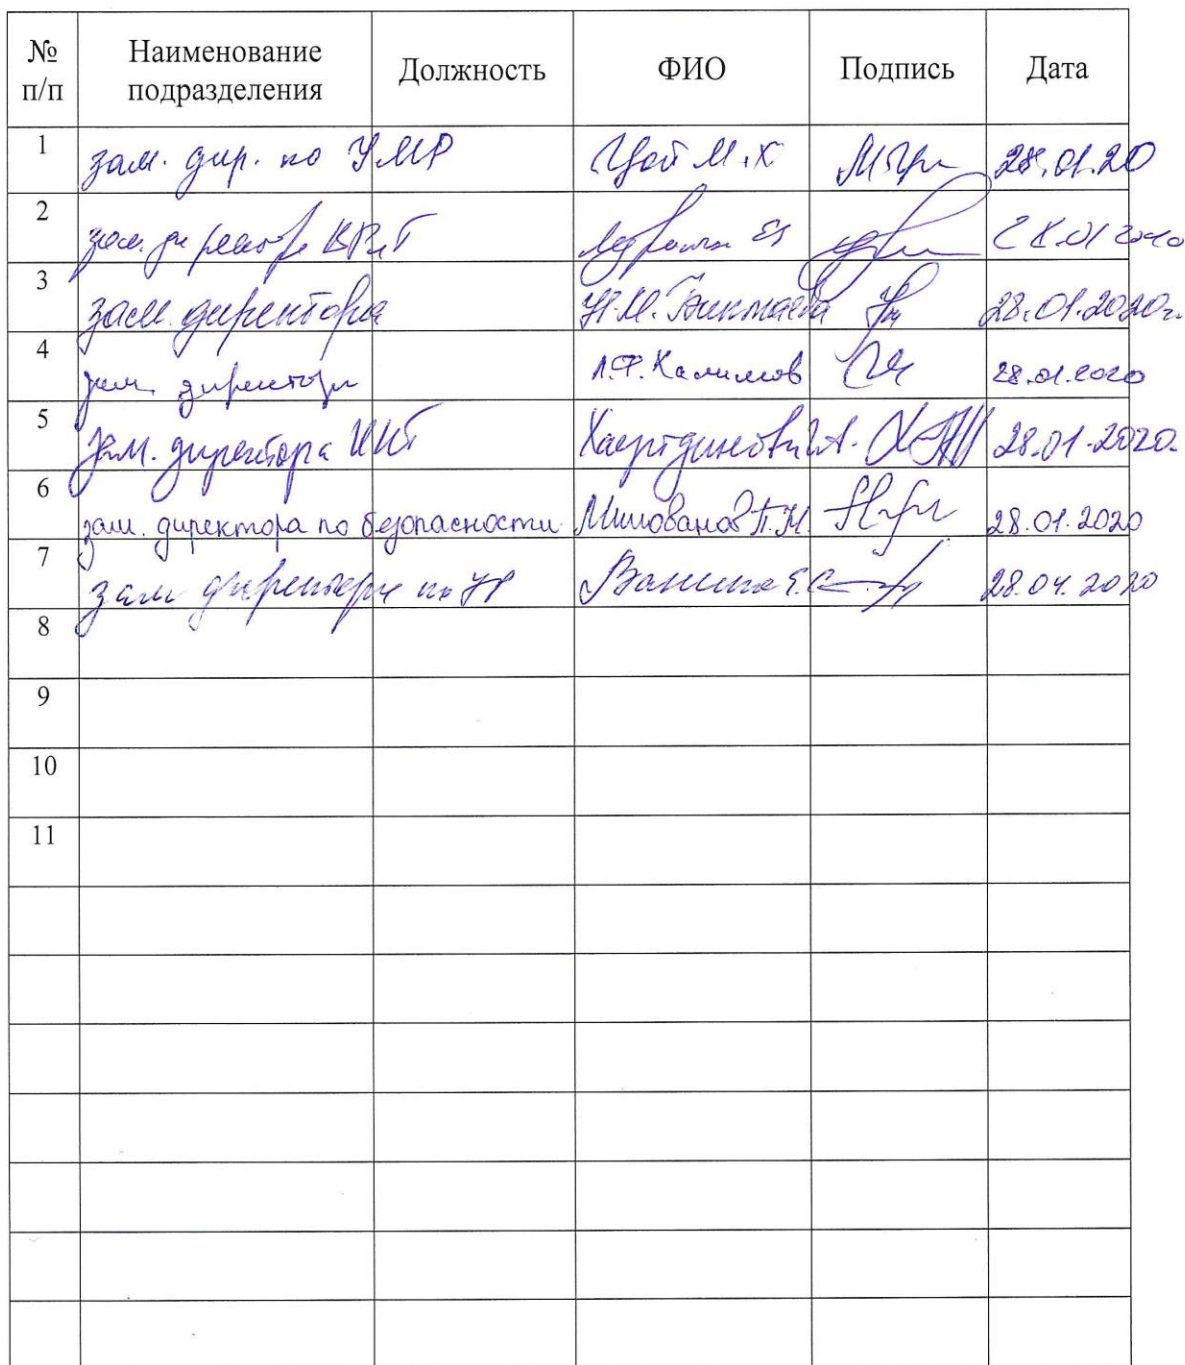 № п/п Наименование подразделения Должность ФИО Подпись Дата
1 зам. дир. по УМР Цой М.Х 28.01.20
2 зам. директора 28.01 2020
3 зам. директора 28.01.2020г.
4 зам. директора Л.Ф. Калимов 28.01.2020
5 Зам. директора ИКТ 28.01.2020.
6 зам. директора по безопасности Милованов П.М. 28.01.2020
7 зам директора по УР Ванина Е.С 28.04.2020
8
9
10
11